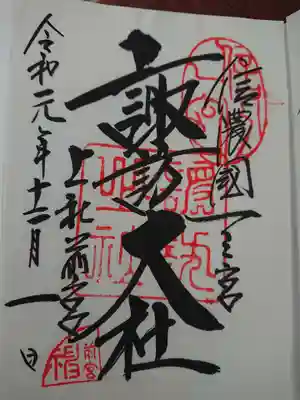 信濃國一之宮
諏訪大社
上社前宮
令和元年十二月一日
前宮